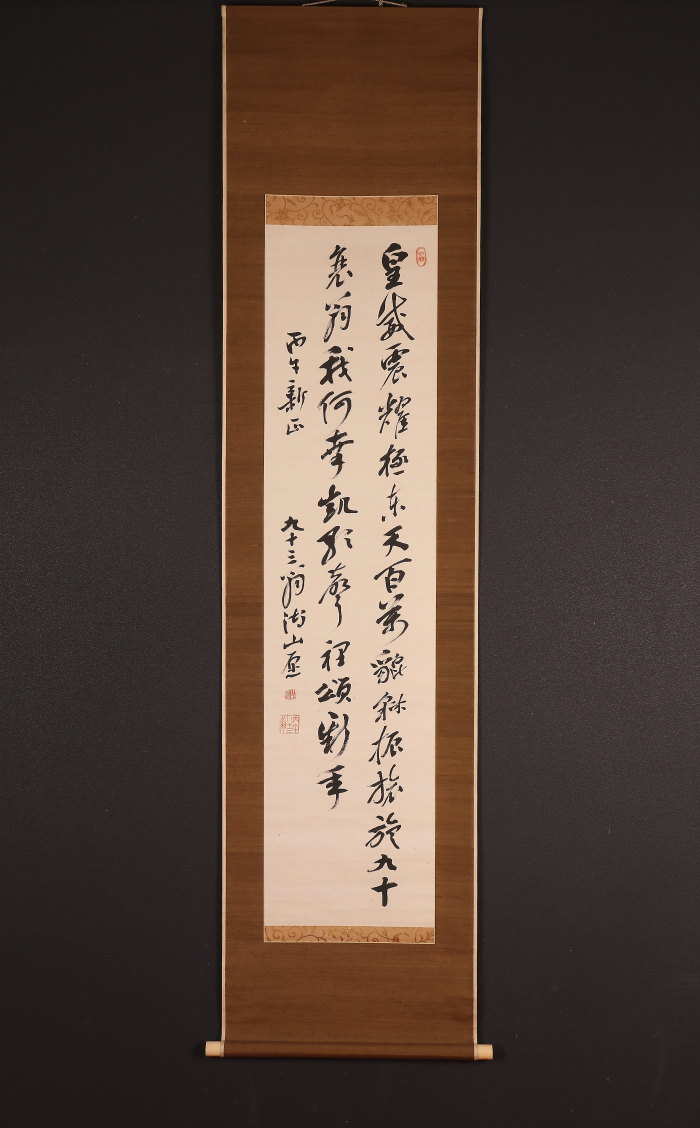 皇威震耀極東天百萬貔貅振旅旋九十
衰翁我何幸凱歌聲裡頌新年
丙午新正
九十三翁湖山愿